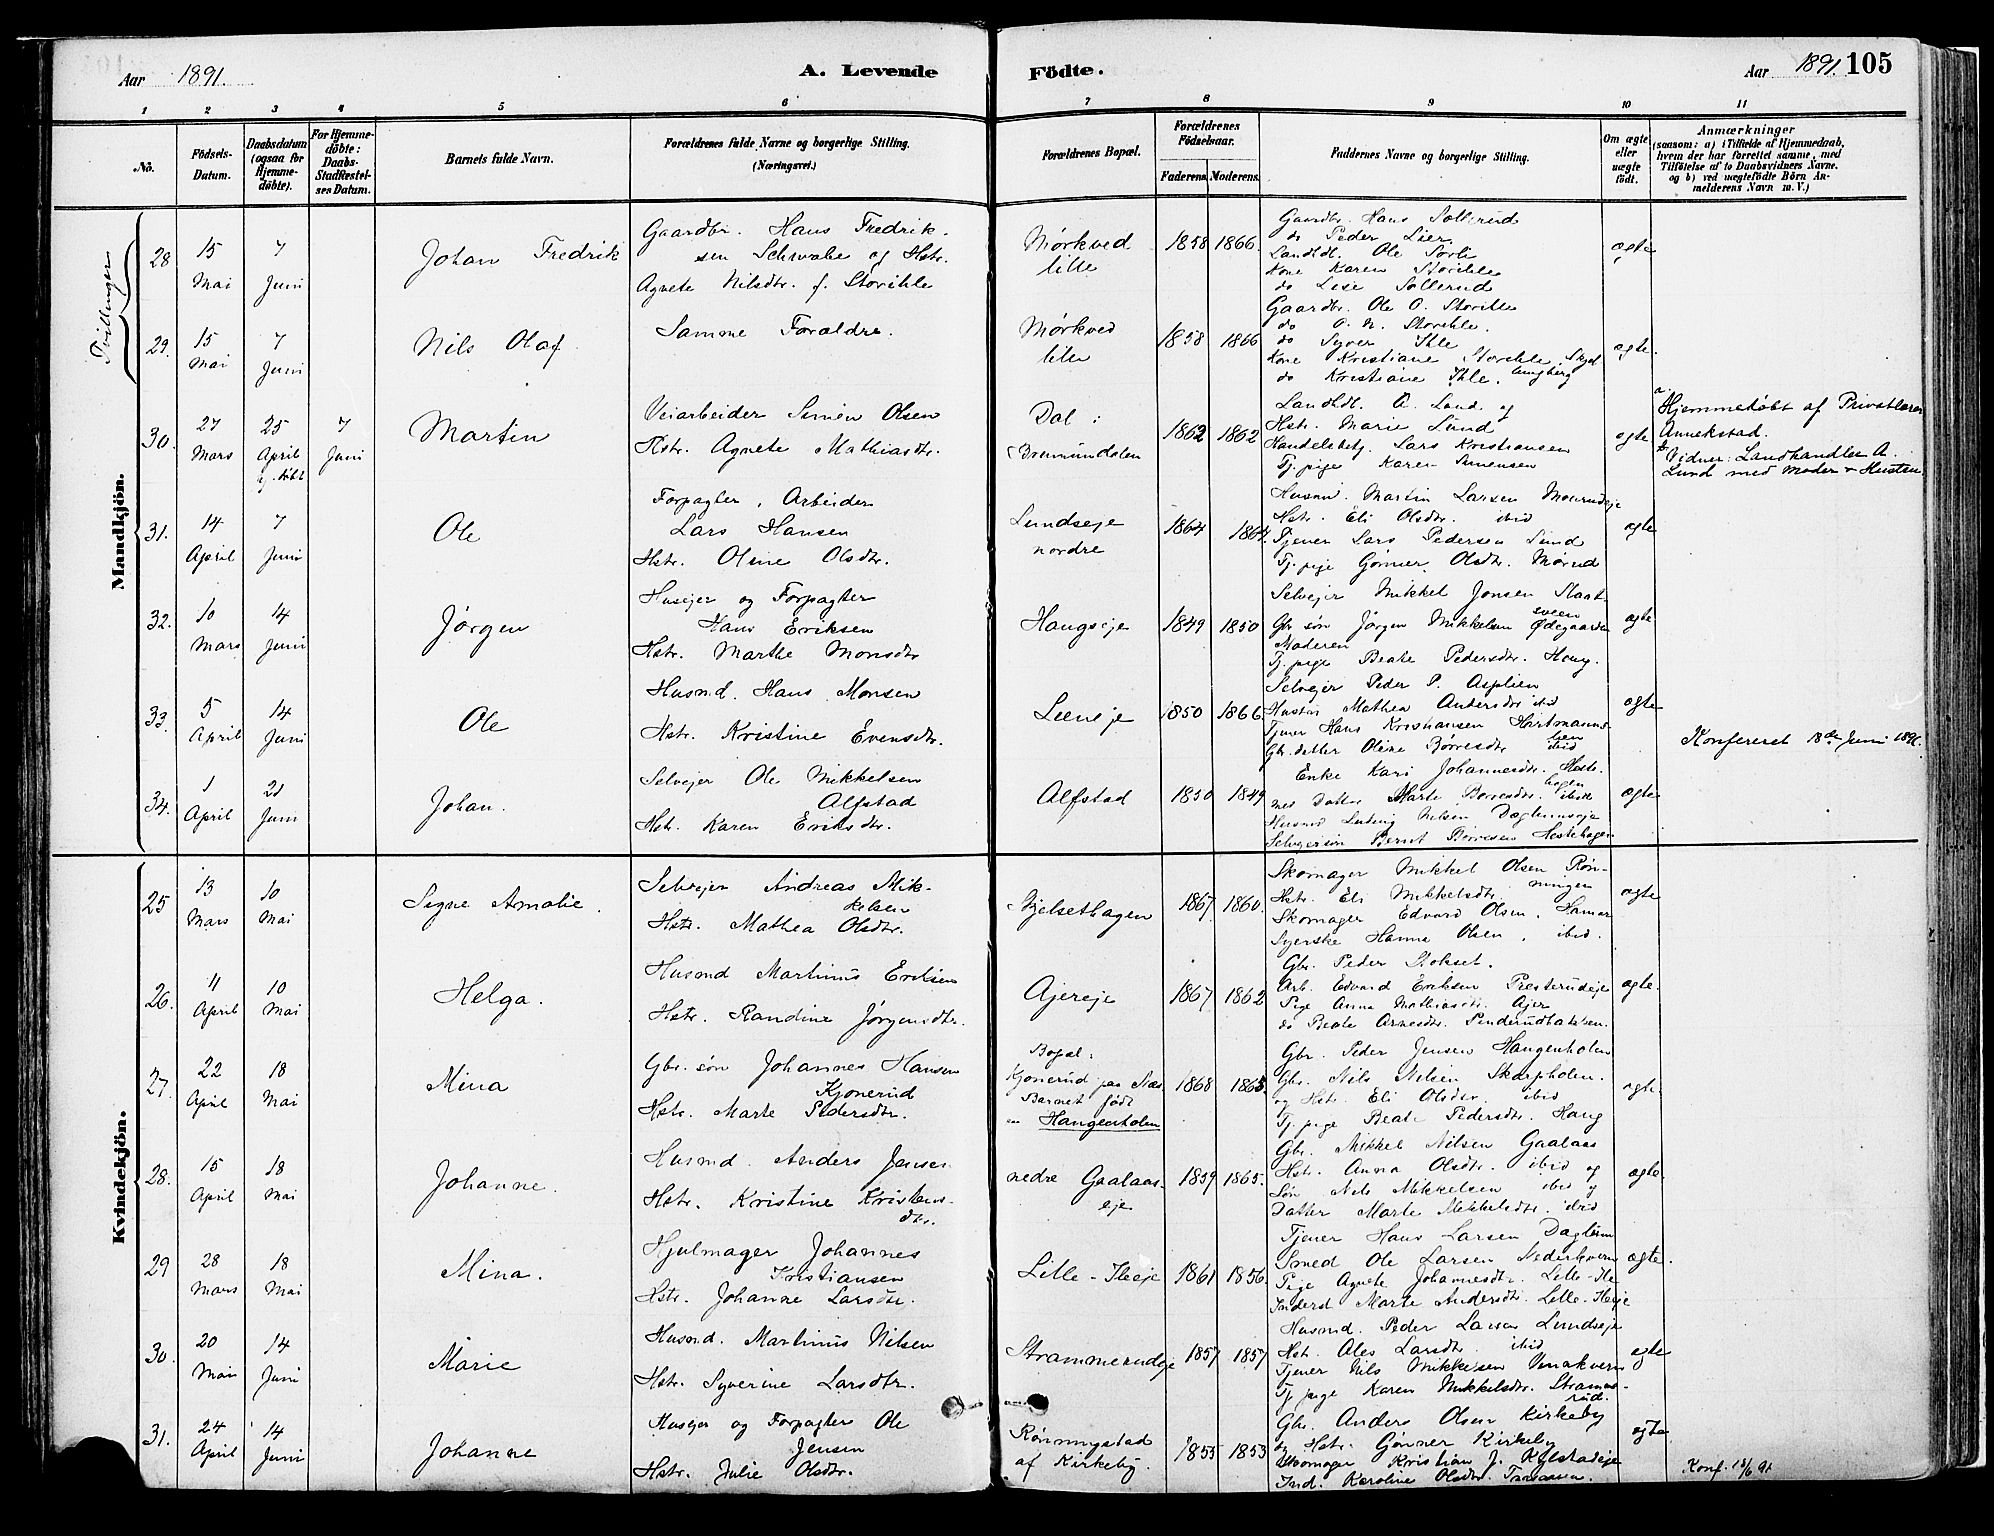 Aar 1891.
A. Levende
Födte.
Aar 1891. 105
1 2 3 4 5 6 7 8 9 10 11
No.
Födsels-
Datum.
Daabsdatum
(ogsaa for
Hjemme-
döbte).
For Hjemme-
döbte:
Daabs-
Stadfæstel-
ses Datum.
Barnets fulde Navn.
Forældrenes fulde Navne og borgerlige Stilling.
(Næringsvei.)
Forældrenes Bopæl.
Forældrenes
Födselsaar.
Faderens. Moderens.
Faddernes Navne og borgerlige Stilling.
Om ægte
eller
uægte
født.
Anmærkninger
(saasom: a) i Tilfælde af Hjemmedaab,
hvem der har forrettet samme, med
Tilföielse af to Daabsvidners Navne.
og b) ved uægtefödte Börn An-
melderens Navn m. V.)
Mandkjön.
Tvillinger
28 15 Mai 7 Juni
Johan Fredrik
Gaardbr. Hans Fredrik-
sen Schwabe og Hstr.
Agnete Nilsdtr. f. Storihle
Mørkved
lille
1858 1866.
Gaardbr. Hans Sollerud
do Peder Lier.
Landhdl. Ole Sorli
Kone Karen Storihle
do Lise Sollerud
ægte
29. 15 Mai 7 Juni
Nils Olaf
Samme Forældre.
Mørkved
lille
1858 1866
Gaardbr. Ole O. Storihle
do O. N. Storihle.
do Syver Ihle
Kone Kristiane Storihle
do Kristiane Ihle.
ægte.
30. 27 Mars 25 April 7 Juni
Martin
Veiarbeider Simen Olsen
Hstr. Agnete Mathiasdtr.
Dal i
Brumunddalen
1862 1862
Landhdl. A. Lund og
Hstr. Marie Lund
Handelsbetj. Lars Kristiansen
Tj. pige Karen Simensen
ægte
a. Hjemmedøbt af Privatlærer
Annekstad.
b. Vidner: Landhandler A.
Lund med Moder
31. 14 April 7 Juni
Ole
Forpagter, Arbeider
Lars Hansen
Hstr. Oline Olsdtr.
Lundseje
nordre
1864 1864.
Husmd. Martin Larsen Mærudeje
Hstr. Eli Olsdtr. ibid
Tjener Lars Pedersen Lund
Tj. pige Gønner Olsdtr. Mørud
ægte
32. 10 Mars 14 Juni
Jørgen
Husejer og Forpagter
Hans Eriksen
Hstr. Marthe Monsdtr
Haugseje
1849 1850
Selvejer Mikkel Jonsen Staat-
sveen
Gbr søn Jørgen Mikkelsen Ødegaarden
Moderen
Tj. pige Beate Pedersdtr. Haug.
ægte
33. 5 April 14 Juni
Ole
Husmd. Hans Monsen
Hstr. Kristine Evensdtr.
Lieneje
1850 1866.
Selvejer Peder P. Asplien
Hustru Mathea Andersdtr ibid
Tjener Hans Kristiansen Hartmanns-
lien
Gb. datter Oline Børresdtr ibid
ægte
Konfereret 18de Juni 1891.
34. 1 April 21 Juni
Johan.
Selvejer Ole Mikkelsen
Alfstad
Hstr. Karen Eriksdtr.
Alfstad
1850 1849
Enke Kari Johannesdtr. Heste-
hagen
med Datter Marte Børresdtr ibid
Husmd Ludvig Nilsen Daglumseje
Selvejersøn Bernt Børresen Hestehagen
ægte
Kvindekjön.
25 13 Mars 10 Mai
Signe Amalie.
Selvejer Andreas Mik-
kelsen
Hstr. Mathea Olsdtr.
Njelsethagen
1867 1860.
Skomager Mikkel Olsen Røn-
ningen
Hstr. Eli Mikkelsdtr.
Skomager Edvard Olsen, Hamar
Syerske Hanna Olsen, ibid.
ægte
26. 11 April 10 Mai
Helga.
Husmd Martinus Eriksen
Hstr. Randine Jørgensdtr.
Ajereje
1867 1862
Gbr. Peder Stokset.
Arb. Edvard Eriksen Presterudeje
Pige Anna Mathiasdtr. Ajer
do Beate Arnesdtr.
ægte.
27. 22 April 18 Mai
Mina
Gbr. søn Johannes Hansen
Kjonerud
Hstr. Marte Pedersdtr.
Bopæl:
Kjonerud paa Næs
Barnet født
Haugenholen
1868 1865
Gbr. Peder Jensen Haugenholen
Gbr. Nils Nilsen Skarpholen.
og Hstr. Eli Olsdtr. ibid
Tj. pige Beate Pedersdtr. Haug
ægte.
28. 15 April 18 Mai
Johanne.
Husmd. Anders Jensen
Hstr. Kristine Kristens-
dtr.
nedre Gaalaas-
eje
1859 1865.
Gbr. Mikkel Nilsen Gaalaas
Hstr. Anna Olsdtr. ibid og
Søn Nils Mikkelsen ibid og
Datter Marte Mikkelsdtr. ibid
ægte.
29 28 Mars 18 Mai
Mina.
Hjulmager Johannes
Kristiansen
Hstr. Johanne Larsdtr.
Lille-Ileeje
1861 1856.
Tjener Hans Larsen Daglum
Smed Ole Larsen Nederkvern
Pige Agnete Johannesdtr. Lille-Ile
Inderst Marte Andersdtr. Lille-Ileeje
ægte.
30. 20 Mai 14 Juni
Marie
Husmd. Martinus Nilsen
Hstr. Syverine Larsdtr.
Strammerudeje
1857 1857
Husmd. Peder Larsen Lundseje
Hstr. Ales Larsdtr. ibid
Tjener Nils Mikkelsen Vinakvern
Tj pige Karen Mikkelsdtr. Stramme-
rud.
ægte
31. 24 April 14 Juni
Johanne
Husejer og Forpagter Ole
Jensen
Hstr. Julie Olsdtr.
Rønningstad
af Kirkeby.
1855 1853
Gbr. Anders Olsen Kirkeby
og Hstr. Gønner Kirkeby
Skomager Kristian J. Kylstadeje
Ind. Karoline Olsdtr
ægte
Konf. 18/6 91